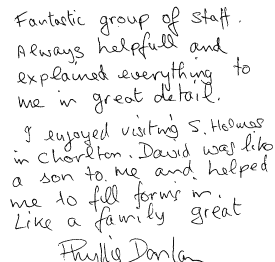 Fantastic group of staff.
Always helpfull and
explained everything to
me in great detail.
I enjoyed visiting S. Holmes
in Chorlton. David was like
a son to me and helped
me to fill forms in.
Like a family great
Phyllis